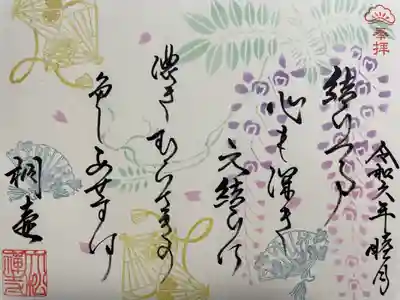 奉拝
令和六年睦月
結ひつる
心も深き
元結ひに
濃きむらさきの
色しあせすは
桐壺